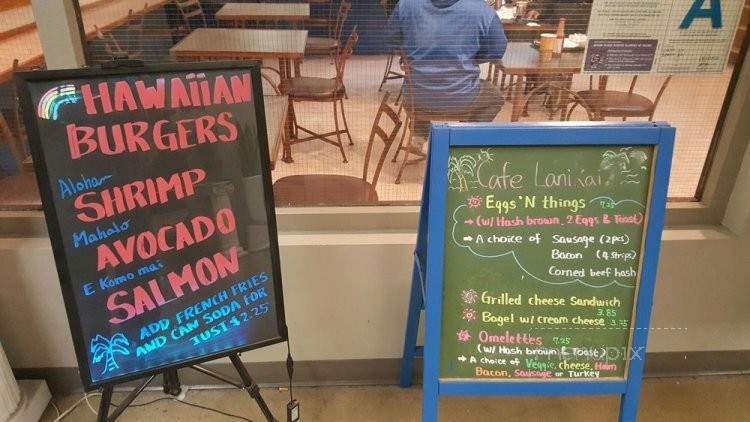 HAWAIIAN
BURGERS
Aloha
SHRIMP
Mahalo
AVOCADO
E Komo mai
SALMON
ADD FRENCH FRIES
AND CAN SODA FOR
JUST $2.25
Cafe Lanikai
Eggs 'N things 7.25
(w/ Hash brown, 2 Eggs & Toast)
A choice of Sausage (2pcs)
Bacon (4 strips)
Corned beef hash
Grilled cheese Sandwich
3.85
Bagel w/ cream cheese 3.25
Omelettes 7.25
(w/ Hash brown & Toast)
A choice of Veggie, cheese, Ham
Bacon, Sausage or Turkey
A